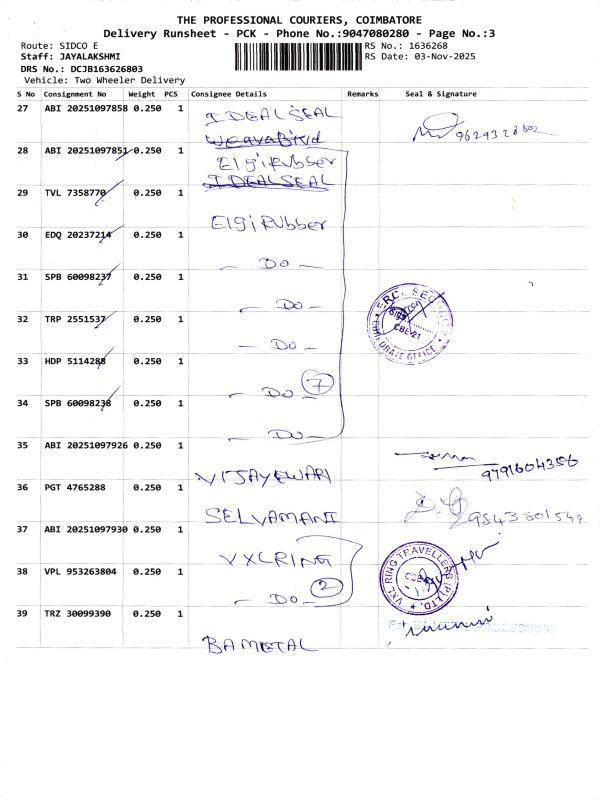 THE PROFESSIONAL COURIERS, COIMBATORE
Delivery Runsheet - PCK - Phone No.:9047080280 - Page No.:3
Route: SIDCO E
RS No.: 1636268
Staff: JAYALAKSHMI
RS Date: 03-Nov-2025
DRS No.: DCJB163626803
Vehicle: Two Wheeler Delivery
S No Consignment No Weight PCS Consignee Details Remarks Seal & Signature
27 ABI 20251097858 0.250 1
IDEALSEAL
9629328802
28 ABI 20251097851 0.250 1
Elgi Rubber
IDEALSEAL
29 TVL 7358770 0.250 1
Elgi Rubber
30 EDQ 20237214 0.250 1
- Do -
31 SPB 60098237 0.250 1
- Do -
32 TRP 2551537 0.250 1
- Do -
CBE-21
CORPORATE OFFICE
33 HDP 5114288 0.250 1
- Do - 7
34 SPB 60098238 0.250 1
- Do -
35 ABI 20251097926 0.250 1
VIJAYEWARI
9791604356
36 PGT 4765288 0.250 1
SELVAMANI
9843801549
37 ABI 20251097930 0.250 1
VXLRING
38 VPL 953263804 0.250 1
- Do - 2
VXL RING TRAVELLERS (P) LTD.
39 TRZ 30099390 0.250 1
BAMETAL